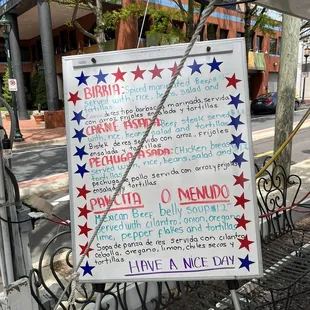 BIRRIA: Spiced marinated Beef
served with, rice, beans, salad and
Carne de res tipo barbacoa marinada, servida
con arroz, frijoles ensalada y tortillas
CARNE ASADA: steak served
with rice, beans, salad and
Bistek de res asada con arroz, frijoles
ensalada y tortillas
PECHUGA ASADA: Chicken breast
served with, rice, beans, salad and
Pechuga de pollo servida con arroz, frijoles,
ensalada y tortillas
PANCITA O MENUDO
Mexican Beef, belly soup
served with cilantro, onion, oregano
lime, pepper flakes and tortillas
Sopa de panza de res servida con cilantro
cebolla, oregano, limon, chiles secos y
tortillas
HAVE A NICE DAY